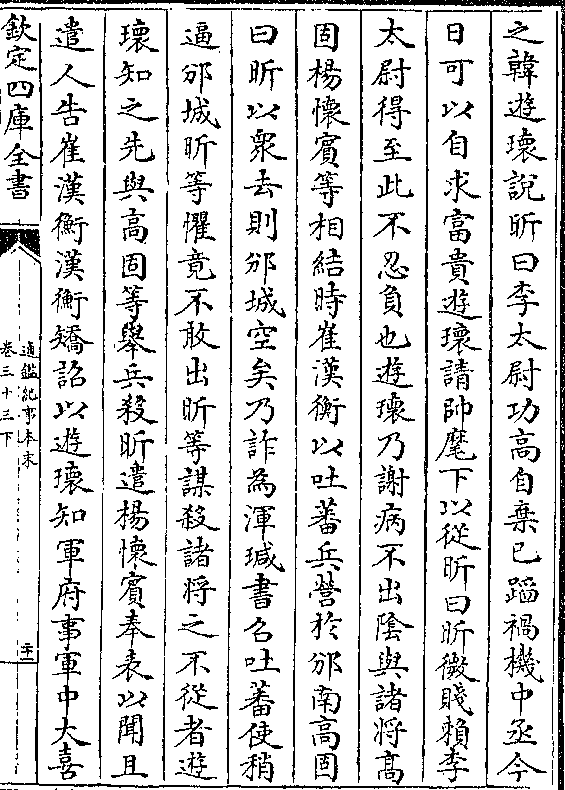 之韓遊瓌說昕曰李太尉功高自棄已蹈禍機中丞今
日可以自求富貴遊瓌請帥麾下以從昕曰昕微賤賴李
太尉得至此不忍負也遊瓌乃謝病不出陰與諸將高
固楊懷賓等相結時崔漢衡以吐蕃兵營於邠南高固
曰昕以衆去則邠城空矣乃詐為渾瑊書召吐蕃使稍
逼邠城昕等懼竟不敢出昕等謀殺諸將之不從者遊
瓌知之先與高固等舉兵殺昕遣楊懷賓奉表以聞且
遣人告崔漢衡漢衡矯詔以遊瓌知軍府事軍中大喜
欽定四庫全書
通鑑紀事本末
卷三十三下